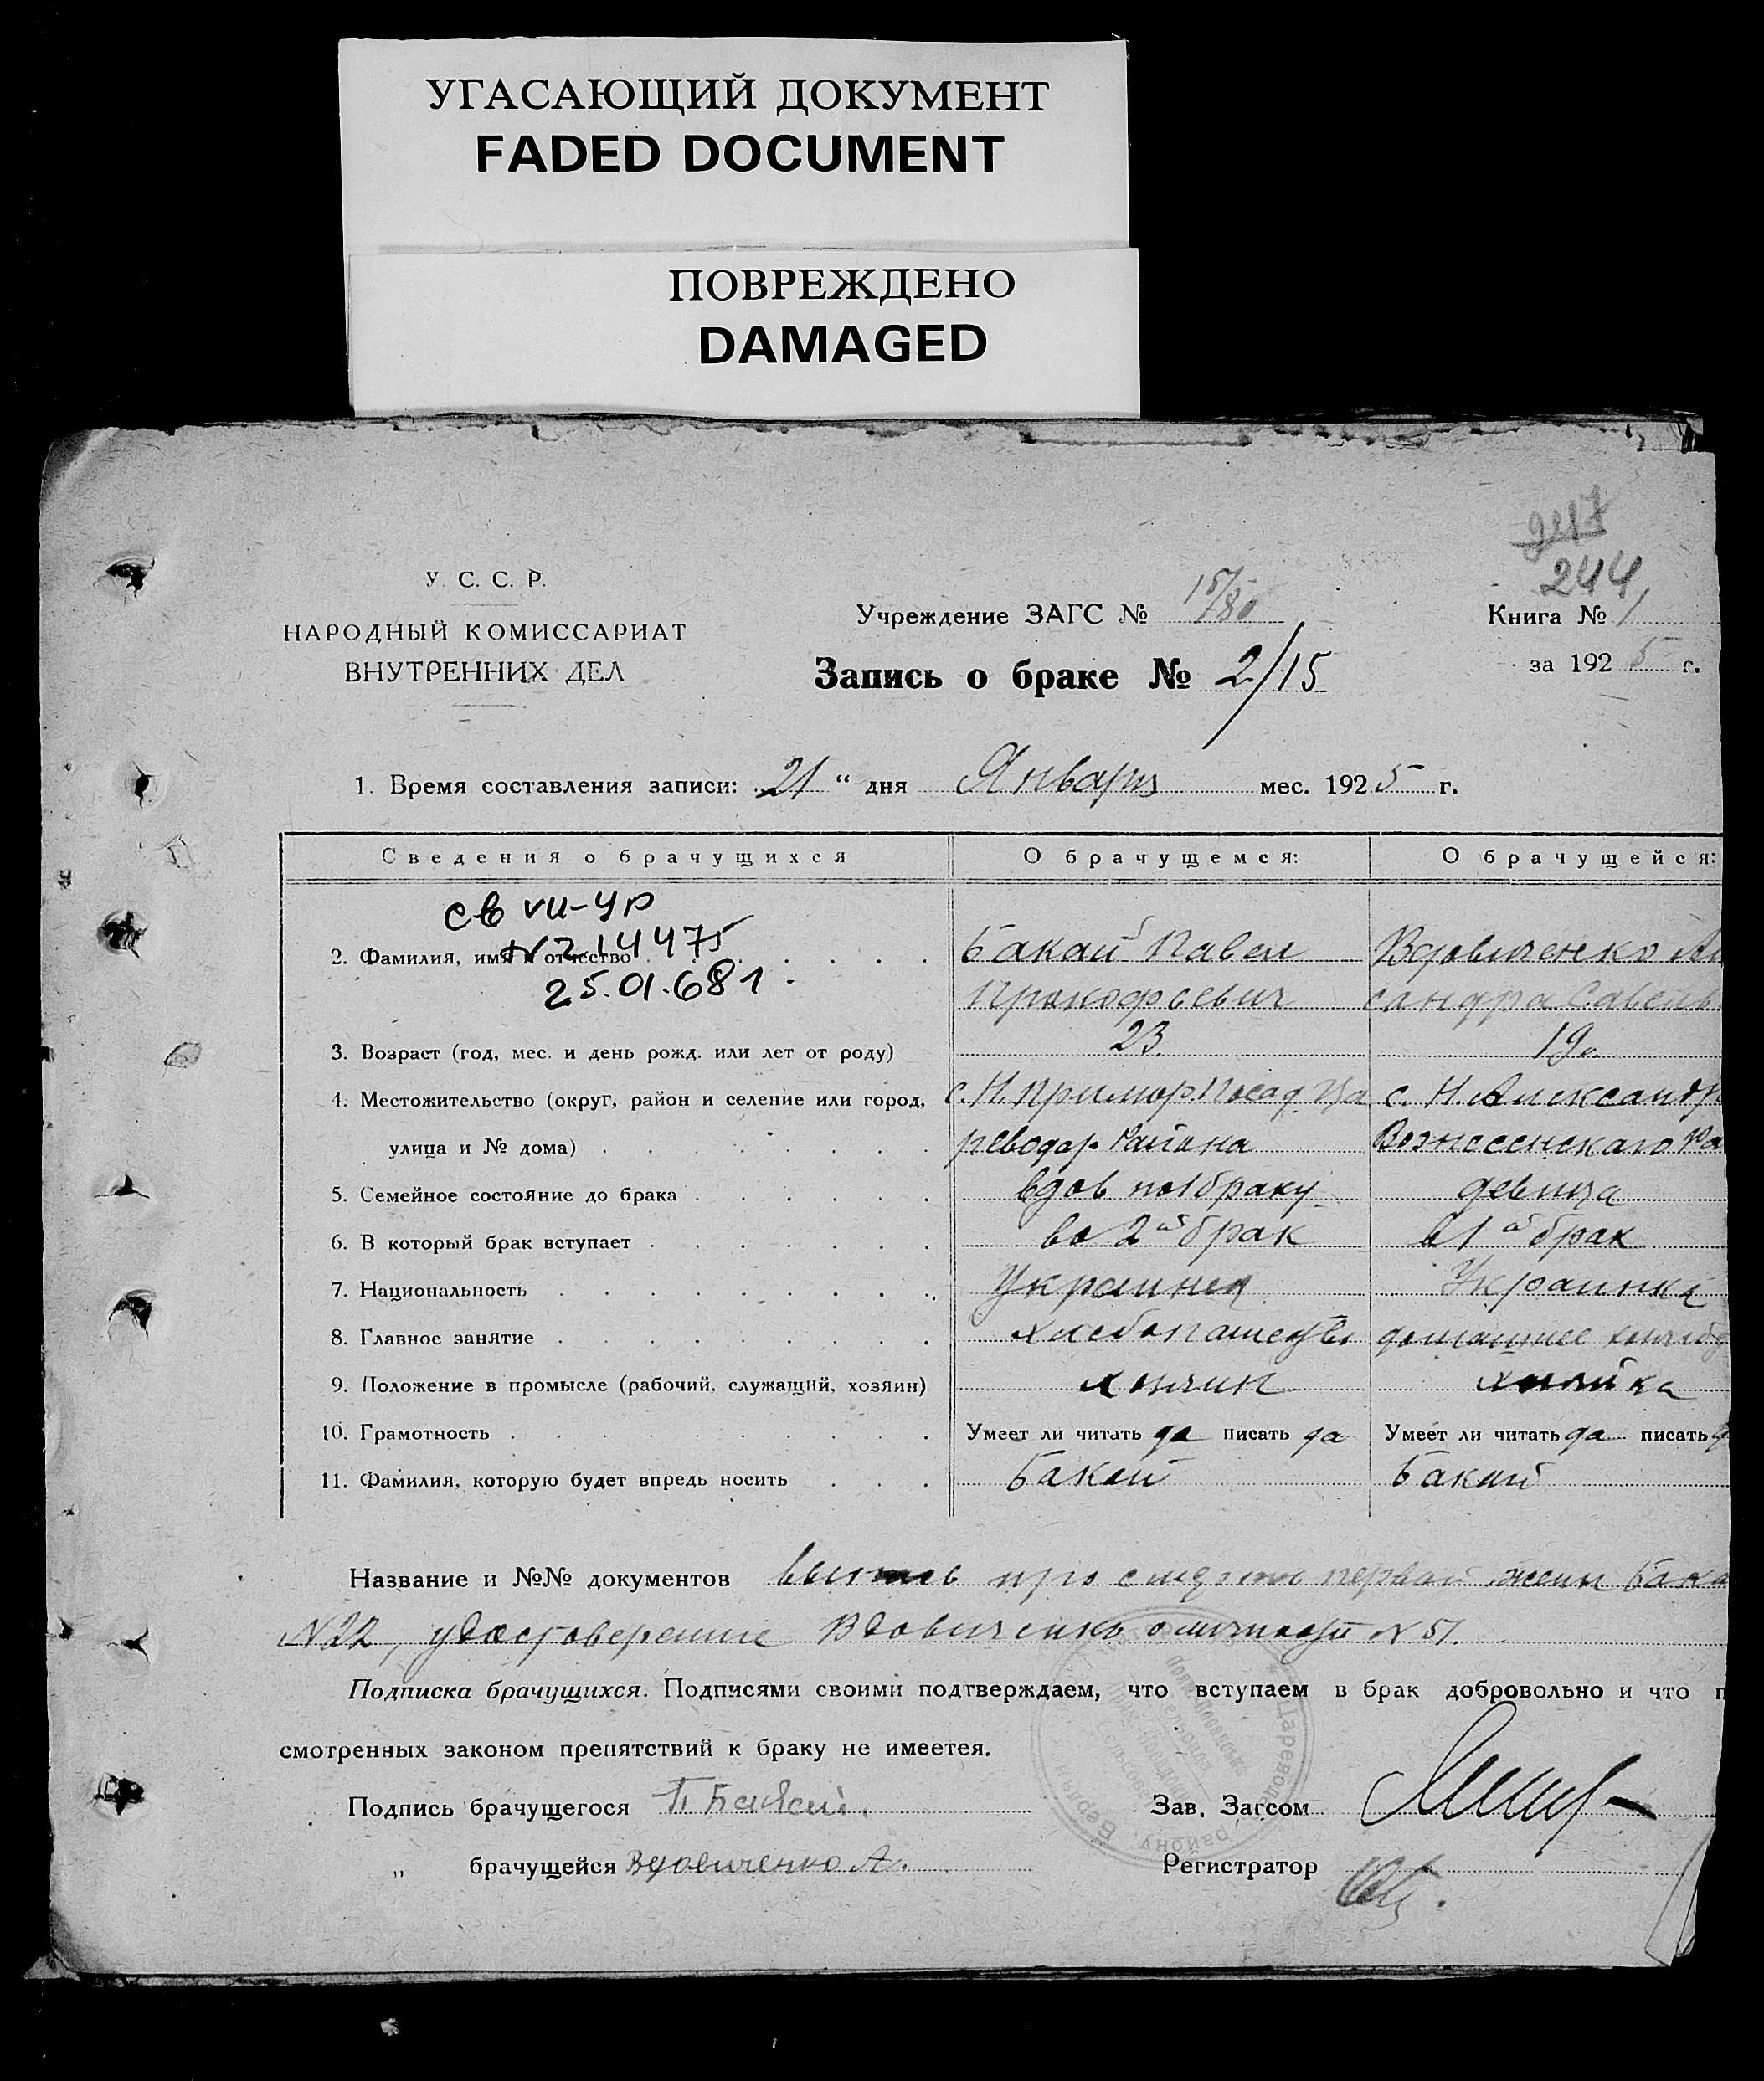 УГАСАЮЩИЙ ДОКУМЕНТ
FADED DOCUMENT
ПОВРЕЖДЕНО
DAMAGED
244
У. С. С. Р.
НАРОДНЫЙ КОМИССАРИАТ
ВНУТРЕННИХ ДЕЛ
Учреждение ЗАГС № 15/780
Книга № 1
Запись о браке № 2/15
за 1925 г.
1. Время составления записи: 21 “ дня Января мес. 1925 г.
Сведения о брачущихся О брачущемся: О брачущейся:
св VII-УР
N 214475
25.01.681.
2. Фамилия, имя и отчество Бакай Павел Вдовиченко Ал
Прокофьевич сандра Савель
3. Возраст (год, мес. и день рожд. или лет от роду) 23. 19
4. Местожительство (округ, район и селение или город, с. Н. Примор. Посад. Ца с. Н. Александр
улица и № дома) реводар. Района Вознесенскаго Ра
5. Семейное состояние до брака вдов по 1 браку девица
6. В который брак вступает во 2ой брак в 1ой брак
7. Национальность Украинец Украинка
8. Главное занятие хлебопашество домашнее
9. Положение в промысле (рабочий, служащий, хозяин) хозяин хозяйка
10. Грамотность Умеет ли читать да писать да Умеет ли читать да писать
11. Фамилия, которую будет впредь носить Бакай Бакай
Название и №№ документов про смерть первой жены Бака
N 22, удостоверение Вдовиченко о личности N 51.
Подписка брачущихся. Подписями своими подтверждаем, что вступаем в брак добровольно и что п
смотренных законом препятствий к браку не имеется.
Подпись брачущегося П Бакай. Зав. Загсом
„ брачущейся Вдовиченко А. Регистратор